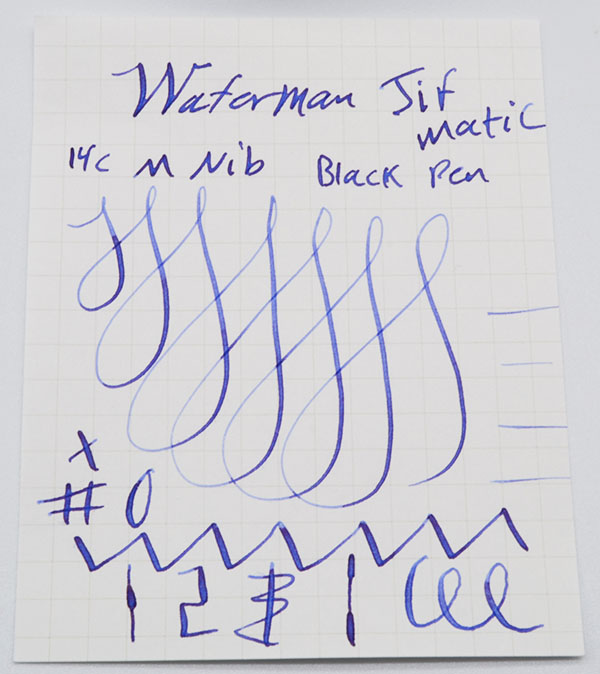 Waterman Jif
matic
14c M Nib Black Pen
X
# 0
1 2 3 1